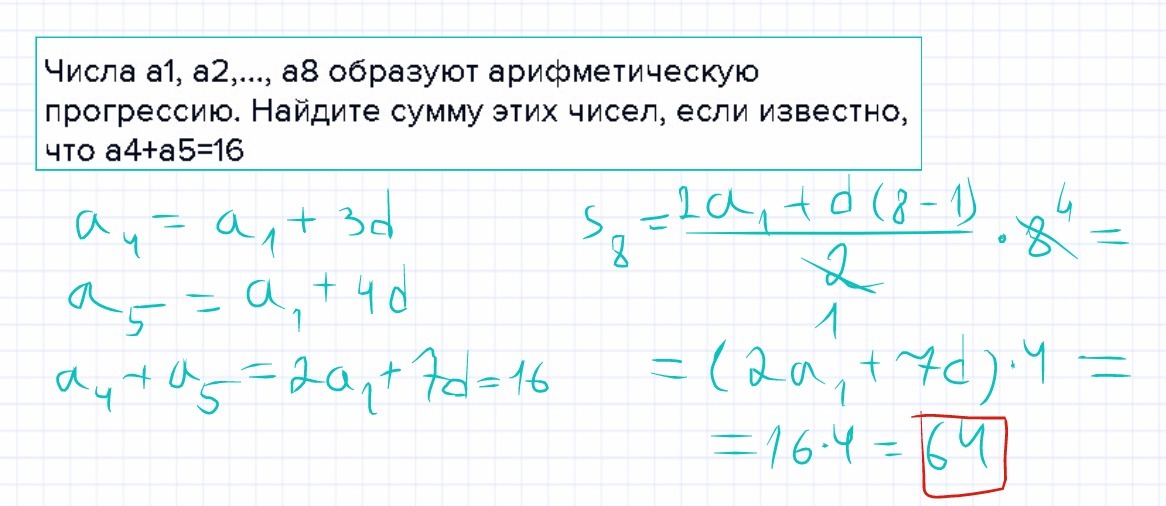 Числа a1, a2,..., a8 образуют арифметическую
прогрессию. Найдите сумму этих чисел, если известно,
что a4+a5=16
a₄ = a₁ + 3d
a₅ = a₁ + 4d
a₄ + a₅ = 2a₁ + 7d = 16
S₈ = (2a₁ + d(8-1))/2 · 8 =
4
1
= (2a₁ + 7d)·4 =
= 16·4 = 64